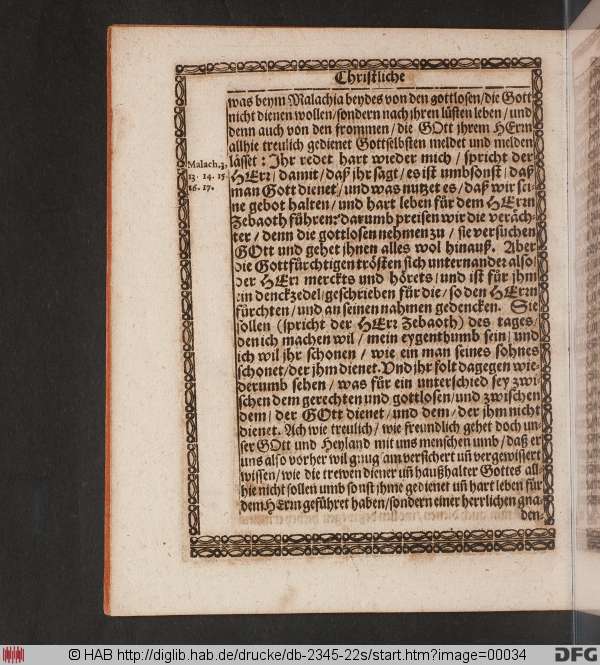 Christliche
was beym Malachia beydes von den gottlosen/die Gott
nicht dienen wollen/sondern nach jhren lüsten leben/und
denn auch von den frommen/die GOtt jhrem HErrn
allhie treulich gedienet Gottselbsten meldet und melden
lässet: Jhr redet hart wieder mich/spricht der
Malach.3,
13. 14. 15.
16. 17.
HErr/damit/daß jhr sagt/es ist umbsonst/daß
man Gott dienet/und was nutzet es/daß wir sei-
ne gebot halten/und hart leben für dem HErrn
Zebaoth führen: darumb preisen wir die veräch-
ter/denn die gottlosen nehmen zu/sie versuchen
GOtt und gehet jhnen alles wol hinauß. Aber
die Gottfürchtigen trösten sich unternander also/
der HErr merckts und hörets/und ist für jhm
ein denckzedel/geschrieben für die/so den HErrn
fürchten/und an seinen nahmen gedencken. Sie
sollen (spricht der HErr Zebaoth) des tages/
den ich machen wil/mein eygenthumb sein/und
ich wil jhr schonen/wie ein man seines sohnes
schonet/der jhm dienet. Vnd jhr solt dagegen wie-
derumb sehen/was für ein unterschied sey zwi-
schen dem gerechten und gottlosen/und zwischen
dem/der GOtt dienet/und dem/der jhm nicht
dienet. Ach wie treulich/wie freundlich gehet doch un-
ser GOtt und Heyland mit uns menschen umb/daß er
uns also vorher wil gnugsam versichert uñ vergewissert
wissen/wie die trewen diener uñ haußhalter Gottes all-
hie nicht sollen umb sonst jhme gedienet uñ hart leben für
dem HErrn geführet haben/sondern einer herrlichen gna-
den-
© HAB http://diglib.hab.de/drucke/db-2345-22s/start.htm?image=00034
DFG